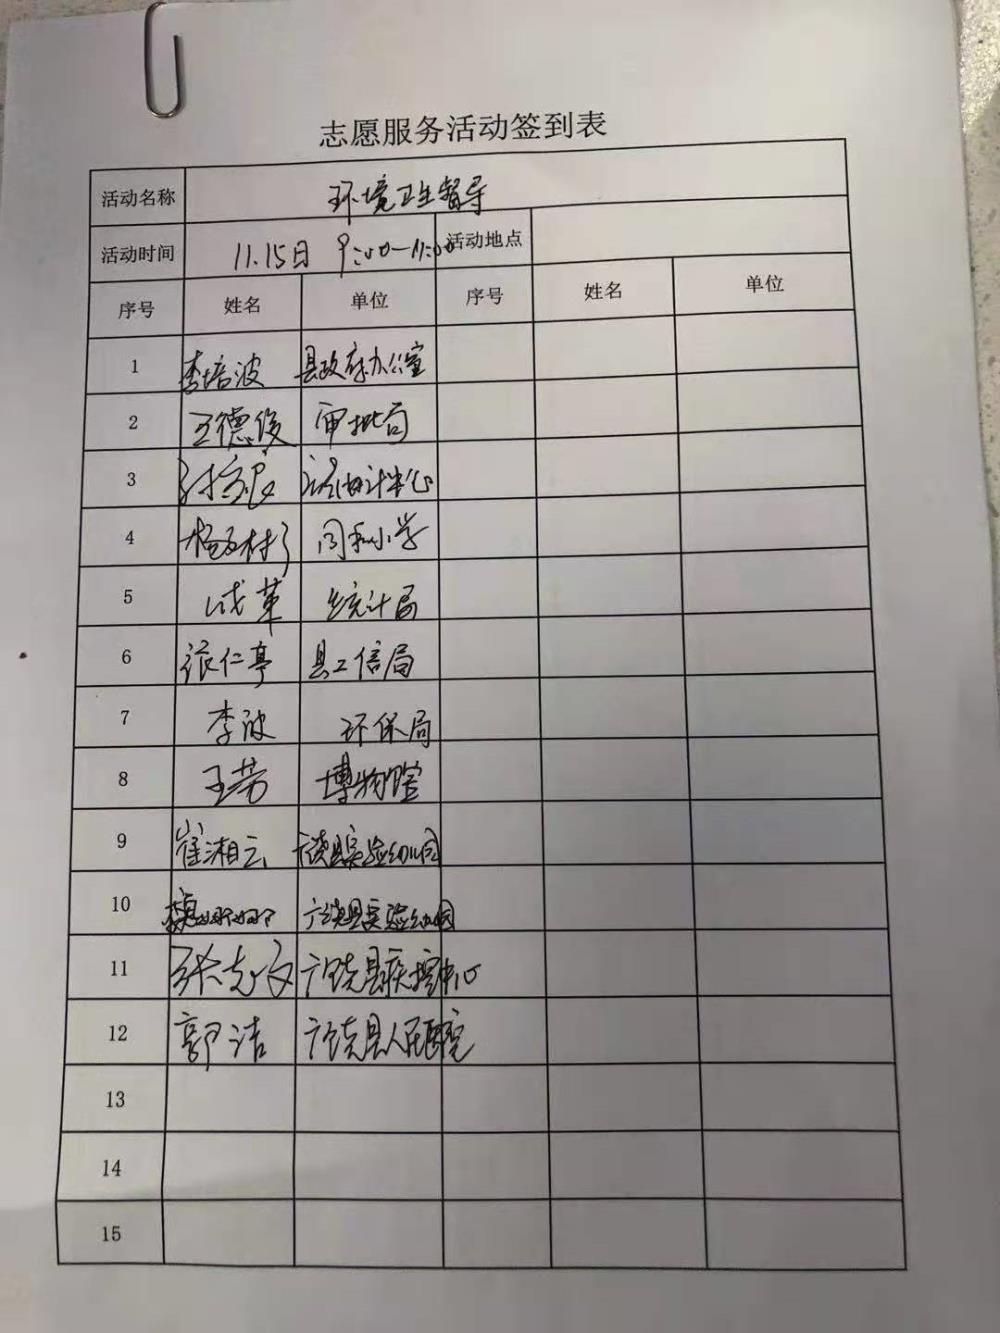 志愿服务活动签到表
活动名称 环境卫生督导
活动时间 11.15日 9:00-11:00 活动地点
序号 姓名 单位 序号 姓名 单位
1 李培波 县政府办公室
2 王德俊 审批局
3
4 同和小学
5 成革 统计局
6 张仁亭 县工信局
7 李波 环保局
8 王芳 博物馆
9 崔湘云 广饶县实验幼儿园
10 魏娜娜 广饶县实验幼儿园
11 张志文 广饶县疾控中心
12 郭洁 广饶县人民医院
13
14
15